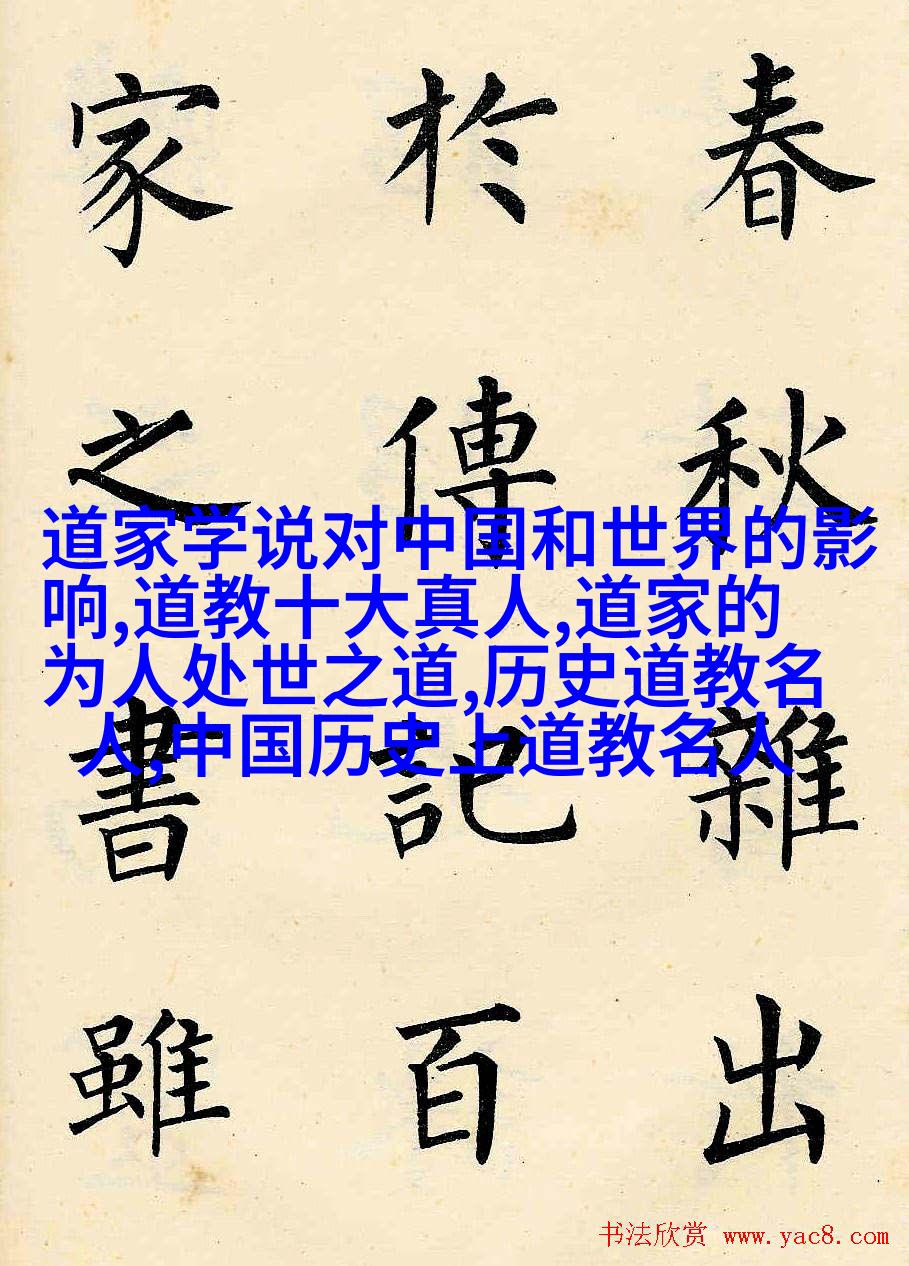 春秋雜出
於傳記百
家之書雖
道家学说对中国和世界的影
响,道教十大真人,道家的
为人处世之道,历史道教名
人,中国历史上道教名人
书法欣赏 www.yac8.com